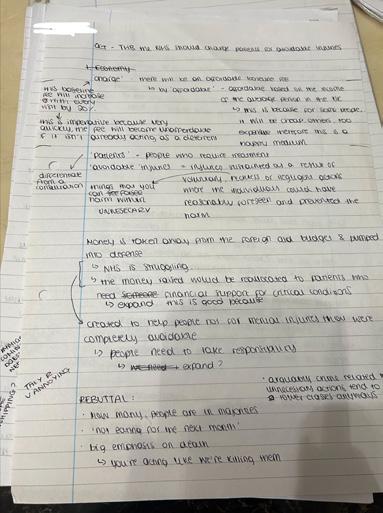 act - THB the NHS should charge patients for avoidable injuries
1. Economy
'charge' - there will be an affordable baseline fee
↳ by 'affordable' - affordable based on the income
of the average person in the UK
↳ this is because for some people,
it will be cheap, others, too
expensive therefore this is a
happy medium
this baseline
fee will increase
every
visit by 20%
↓
this is imperative because very
quickly, the fee will become unaffordable
if it isn't already acting as a deterrent
'Patients' - people who require treatment
'avoidable injuries' = injuries as a result of
voluntary, reckless or negligent actions
where the individuals could have
reasonably foreseen and prevented the
harm
differentiate
from a
things that you
can
harm without
UNNECESSARY
Money is taken away from the foreign aid budget & pumped
into defense
↳ NHS is struggling
↳ the money raised would be reallocated to patients who
need financial support for critical conditions
↳ expand this is good because
created to help people not for menial injuries that were
completely avoidable
↳ people need to take responsibility
↳ expand?
THEY R
ANNOYING
REBUTTAL:
• How many people are in majorities
• 'not eating for the next month'
• big emphasis on death
↳ you're acting like we're killing them
• arguably crime related &
unnecessary actions tend to
lower classes anyways